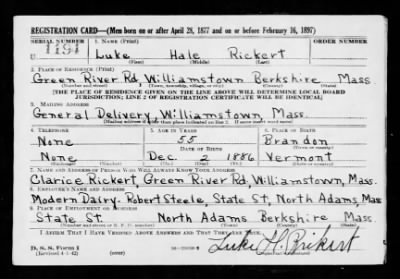 REGISTRATION CARD—(Men born on or after April 28, 1877 and on or before February 16, 1897)
SERIAL NUMBER 1. NAME (Print) ORDER NUMBER
1191 Luke Hale Rickert
(First) (Middle) (Last)
2. PLACE OF RESIDENCE (Print)
Green River Rd, Williamstown Berkshire Mass.
(Number and street) (Town, township, village, or city) (County) (State)
[THE PLACE OF RESIDENCE GIVEN ON THE LINE ABOVE WILL DETERMINE LOCAL BOARD
JURISDICTION; LINE 2 OF REGISTRATION CERTIFICATE WILL BE IDENTICAL]
3. MAILING ADDRESS
General Delivery, Williamstown, Mass.
[Mailing address if other than place indicated on line 2. If same insert word same]
4. TELEPHONE 5. AGE IN YEARS 6. PLACE OF BIRTH
None 55 Brandon
DATE OF BIRTH
None Dec. 2 1886 Vermont
7. NAME AND ADDRESS OF PERSON WHO WILL ALWAYS KNOW YOUR ADDRESS
Clarice Rickert, Green River Rd, Williamstown, Mass.
8. EMPLOYER'S NAME AND ADDRESS
Modern Dairy. Robert Steele, State St, North Adams, Mass
9. PLACE OF EMPLOYMENT OR BUSINESS
State St. North Adams Berkshire Mass.
(Number and street or R. F. D. number) (Town) (County) (State)
I AFFIRM THAT I HAVE VERIFIED ABOVE ANSWERS AND THAT THEY ARE TRUE.
D. S. S. Form 1
(Revised 4-1-42) (over) Luke H. Rickert